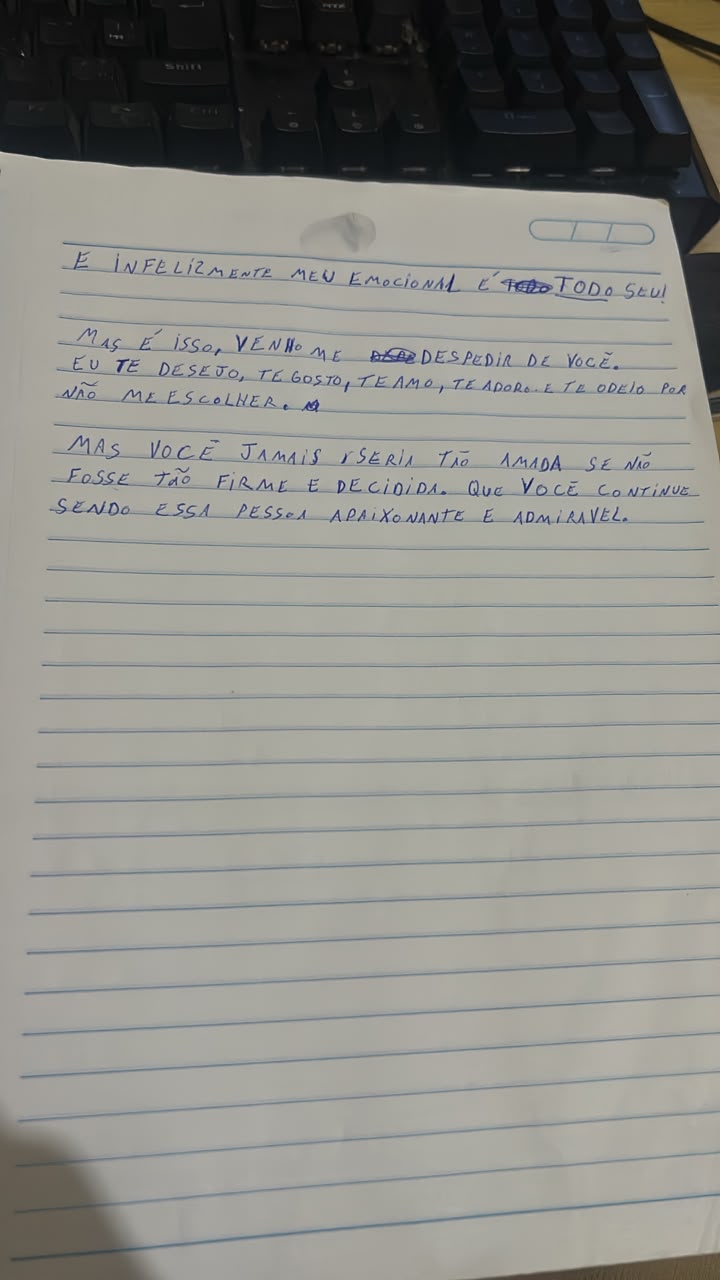 Shift
E INFELIZMENTE MEU EMOCIONAL É TODO SEU!
MAS É ISSO, VENHO ME DESPEDIR DE VOCÊ.
EU TE DESEJO, TE GOSTO, TE AMO, TE ADORO E TE ODEIO POR
NÃO ME ESCOLHER.
MAS VOCÊ JAMAIS SERIA TÃO AMADA SE NÃO
FOSSE TÃO FIRME E DECIDIDA. QUE VOCÊ CONTINUE
SENDO ESSA PESSOA APAIXONANTE E ADMIRAVEL.